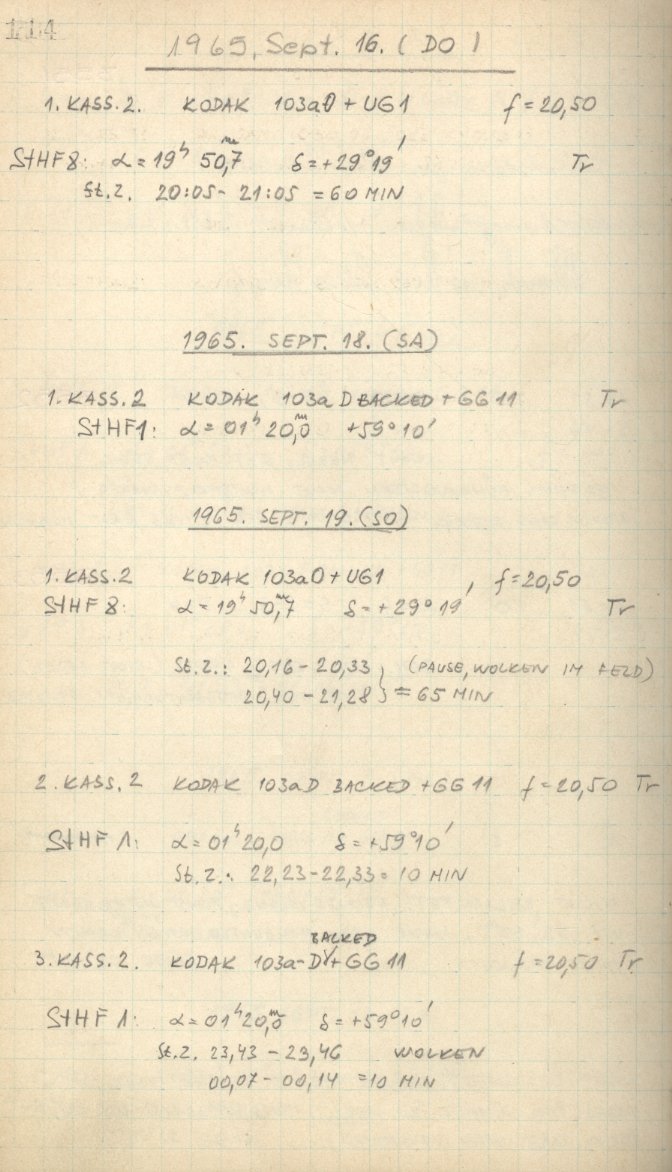 1965, Sept. 16. (DO)
1. KASS. 2. KODAK 103aO + UG1 f = 20,50
StHF8: α = 19ʰ 50,7ᵐ δ = +29°19' Tr
St. Z. 20:05 - 21:05 = 60 MIN
1965. SEPT. 18. (SA)
1. KASS. 2 KODAK 103a D BACKED + GG 11 Tr
StHF1: α = 01ʰ 20,0ᵐ +59°10'
1965. SEPT. 19. (SO)
1. KASS. 2 KODAK 103aO + UG1 f = 20,50
StHF 8: α = 19ʰ 50,7ᵐ δ = +29°19' Tr
St. Z.: 20,16 - 20,33 } (PAUSE, WOLKEN IM FELD)
20,40 - 21,28 } = 65 MIN
2. KASS. 2 KODAK 103aD BACKED + GG 11 f = 20,50 Tr
StHF 1: α = 01ʰ 20,0 δ = +59°10'
St. Z.: 22,23 - 22,33 = 10 MIN
BACKED
3. KASS. 2. KODAK 103a-D + GG 11 f = 20,50 Tr
StHF 1: α = 01ʰ 20,0ᵐ δ = +59°10'
St. Z. 23,43 - 23,46 WOLKEN
00,07 - 00,14 = 10 MIN